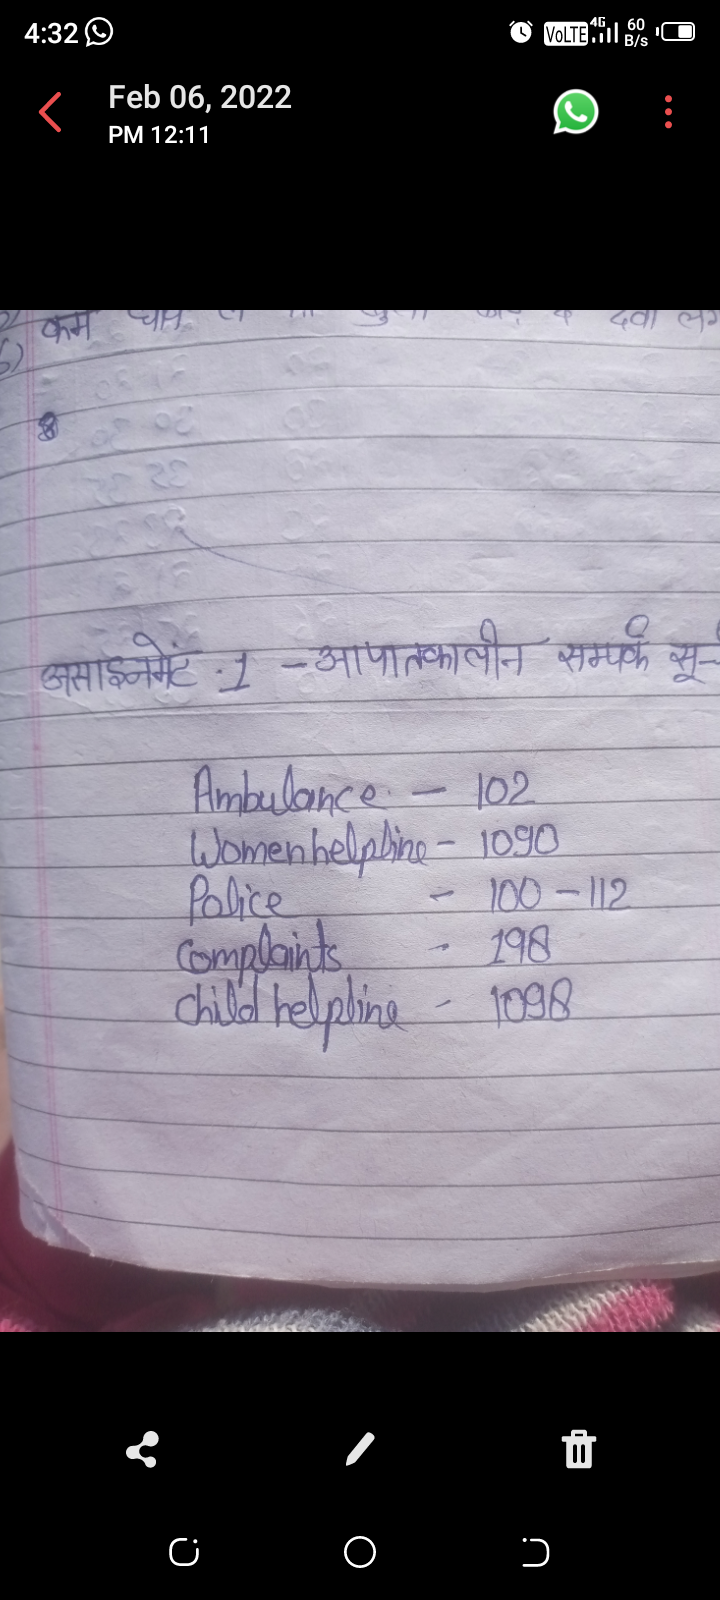 4:32
VoLTE 4G 60 B/s
Feb 06, 2022
PM 12:11
कम
6)
8
असाइनमेंट 1 - आपातकालीन सम्पर्क सू
Ambulance - 102
Women helpline - 1090
Police - 100 - 112
Complaints - 198
Child helpline - 1098